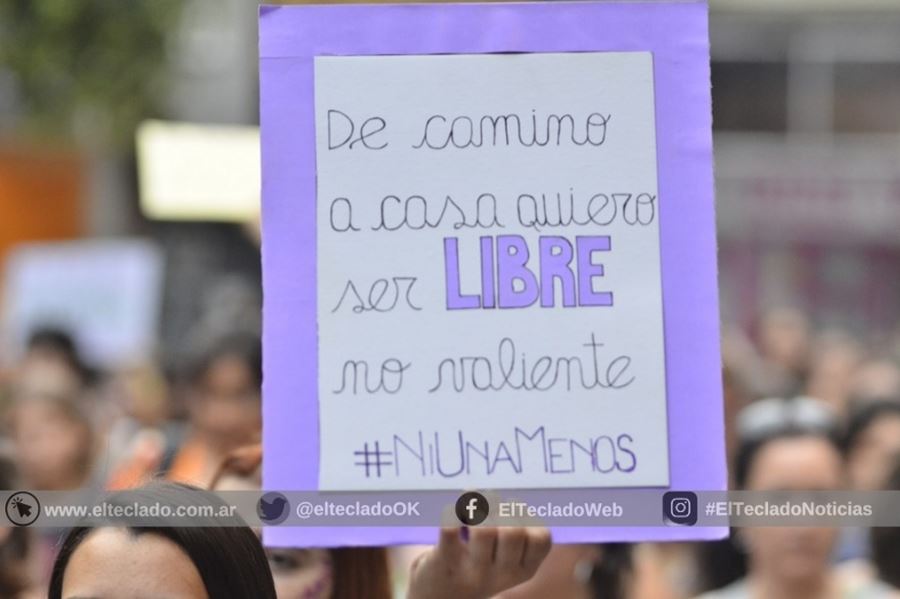 De camino
a casa quiero
ser LIBRE
no valiente
#NiUnaMenos
www.elteclado.com.ar @eltecladoOK ElTecladoWeb #ElTecladoNoticias